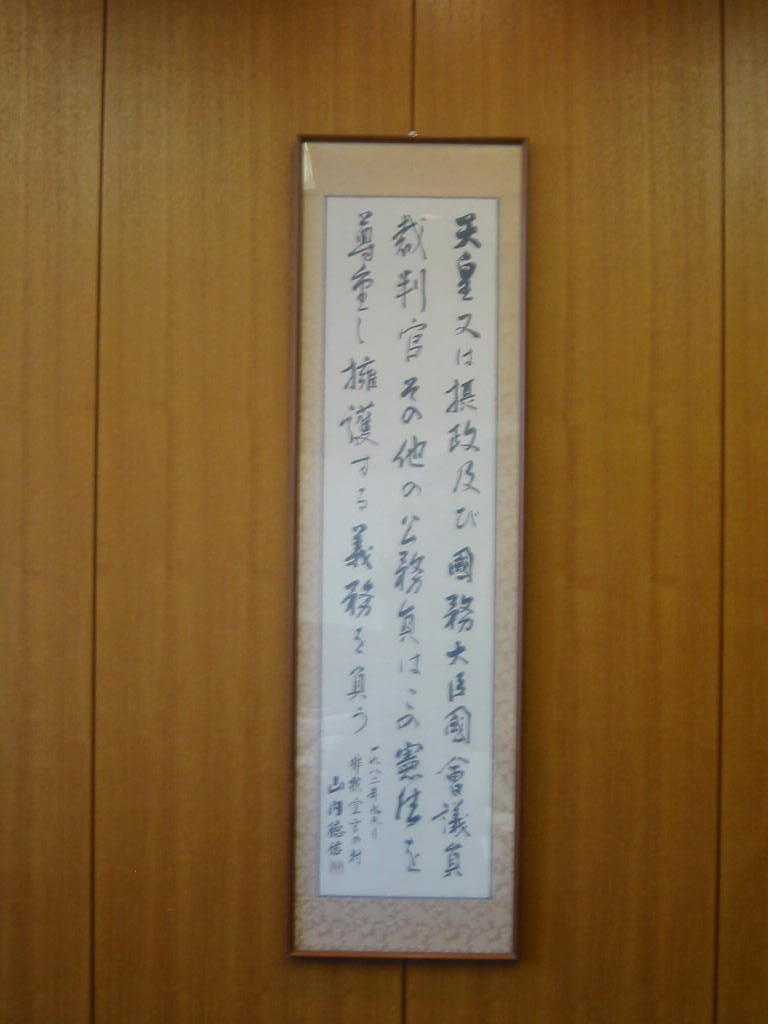 天皇又は摂政及び國務大臣國會議員
裁判官その他の公務員はこの憲法を
尊重し擁護する義務を負う
一九八二年
非核宣言の村
山内徳信